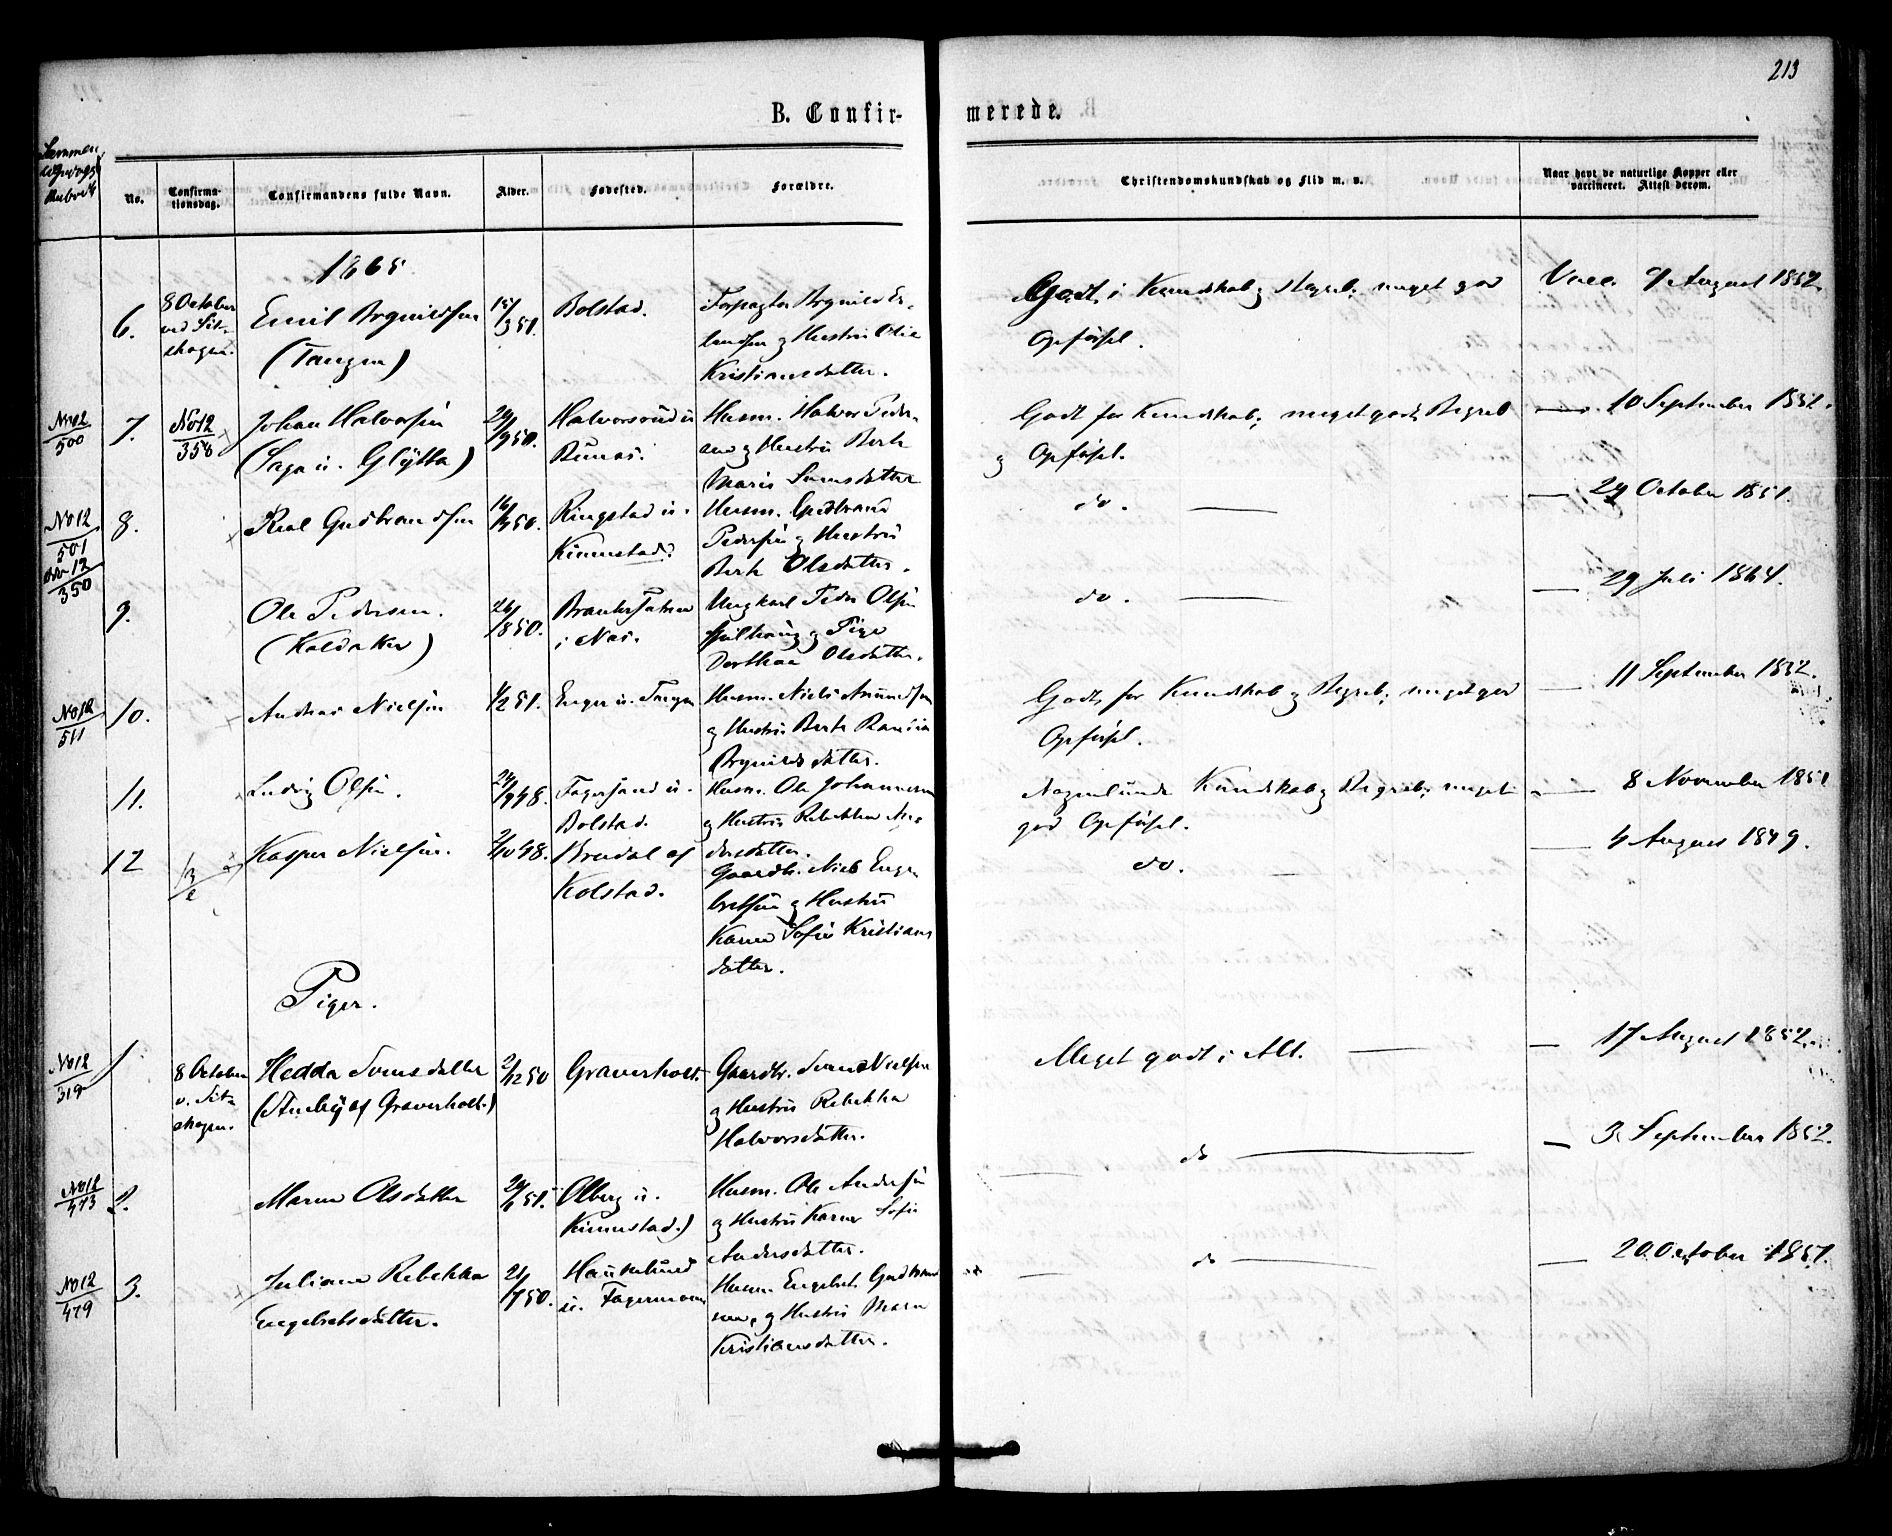 213
B. Confirmerede.
No.
Confirmationsdag.
Confirmandens fulde Navn.
Alder.
Fødested.
Forældre.
Christendomskundskab og Flid m. v.
Naar havt de naturlige Kopper eller
vaccineret. Attest derom.
1865
6.
8 October
Emil
(Tangen)
15/3 51.
Bolstad.
og Hustru Olia
Kristiansdatter.
Godt i Kundskab og Begreb, meget god
Opførsel.
Vacc. 9 August 1852.
No 12
500
7.
No 12
358
Johan Halvorsen
24/9 50.
Halvorsrud u.
Husm. Halvor Peder-
sen og Hustru Berte
Marie Svensdatter
Godt for Kundskab, meget godt Begreb
og Opførsel.
— 10 September 1852.
No 12
501
No 12
350
8.
Karl Gudbrandsen
Ringstad u.
Kinnestad.
Husm. Gudbrand
Pedersen og Hustru
Berte Olsdatter.
do. —
— 24 October 1851.
9.
Ole Pedersen.
(Koldaker)
26/8 50.
i Næs.
Ungkarl Peder Olsen
og Pige
Dorthea Olsdatter.
do. —
— 29 Juli 1864.
No 12
511
10.
Andreas Nielsen
1/2 51.
Enger u. Tangen
Husm. Niels Amundsen
og Hustru Berte
Godt for Kundskab og Begreb, meget god
Opførsel.
— 11 September 1852.
11.
Ludvig Olsen.
24/9 48.
u.
Bolstad.
Husm. Ole Johannesen
og Hustru Rebekka An-
dersdatter.
Nogenlunde Kundskab og Begreb, meget
god Opførsel.
— 8 November 1851
12
Kasper Nielsen.
2/10 48.
Bredal af
Kolstad.
Gaardbr. Niels Enge-
bretsen og Hustru
Karen Sofie Kristians
datter.
do.
— 4 August 1849.
Piger.
No 12
319
1
8 October
Hedda Svensdatter
2/12 50
Graverholt.
Gaardbr. Svend Nielsen
og Hustru Rebekka
Halvorsdatter.
Meget godt i Alt. —
— 17 August 1852.
No 12
473
2.
Maren Olsdatter
24/6 51.
Olberg u.
Kinnestad.)
Husm. Ole Andersen
og Hustru Karen Sofie
Andersdatter.
do —
— 3 September 1852.
No 12
479
3.
Juliane Rebekka
Engebretsdatter.
21/7 50.
Haukelund
u. Fagermoen
Husm. Engebret Gudbrand
sen, og Hustru Maren
Kristiansdatter.
do —
— 20 October 1851.